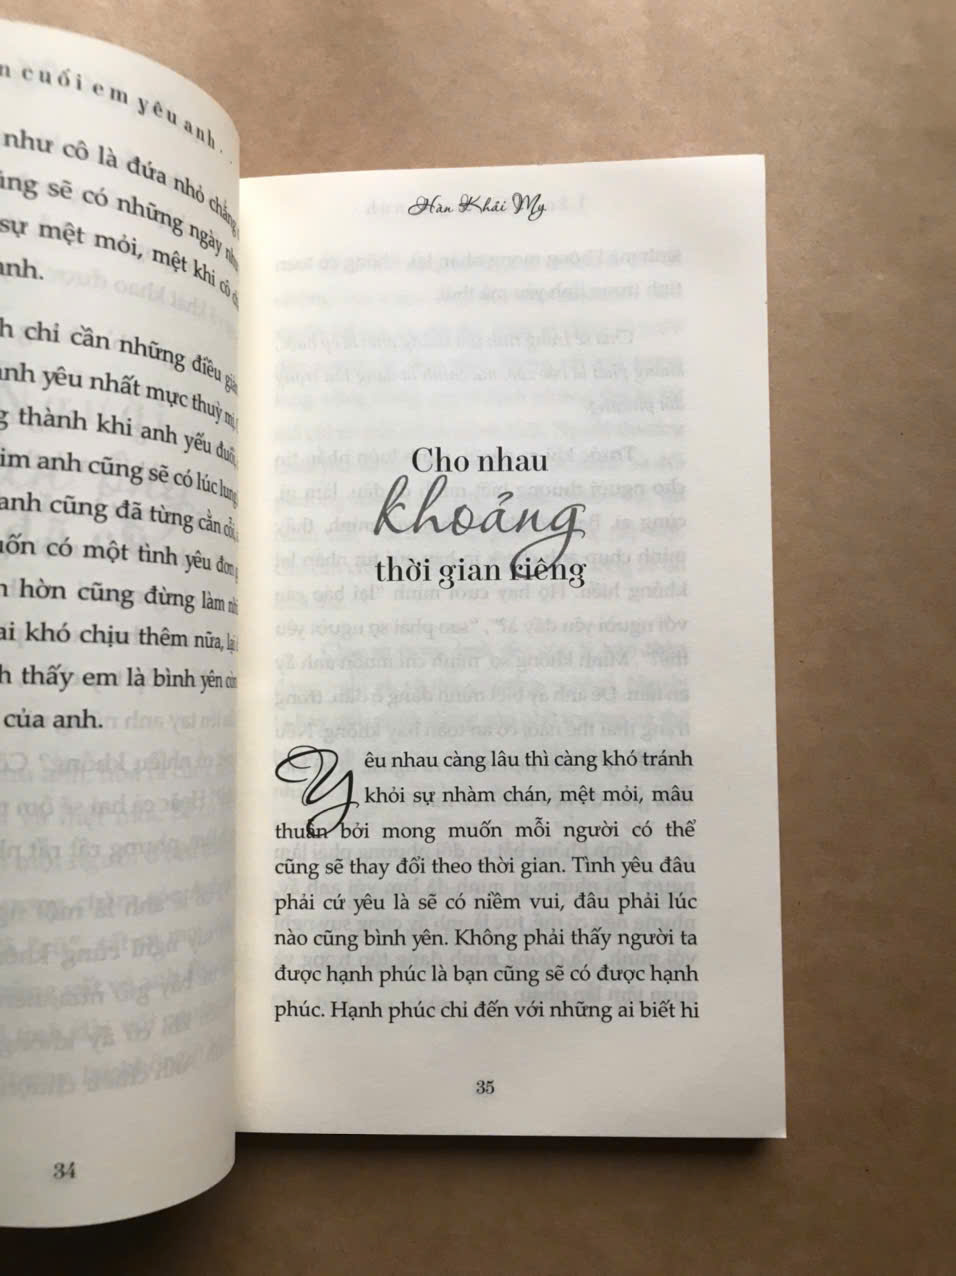 cuối em yêu anh . .
như cô là đứa nhỏ chẳng
sẽ có những ngày như
sự mệt mỏi, mệt khi cô
anh.
chỉ cần những điều
anh yêu nhất mực thuỳ
thành khi anh yếu đuối,
anh cũng sẽ có lúc lung
anh cũng đã từng cằn cỗi,
có một tình yêu đơn
hờn cũng đừng làm
khó chịu thêm nữa, lại
thấy em là bình yên
của anh.
34
Hàn Khải My
Cho nhau
khoảng
thời gian riêng
Yêu nhau càng lâu thì càng khó tránh
khỏi sự nhàm chán, mệt mỏi, mâu
thuẫn bởi mong muốn mỗi người có thể
cũng sẽ thay đổi theo thời gian. Tình yêu đâu
phải cứ yêu là sẽ có niềm vui, đâu phải lúc
nào cũng bình yên. Không phải thấy người ta
được hạnh phúc là bạn cũng sẽ có được hạnh
phúc. Hạnh phúc chỉ đến với những ai biết hi
35